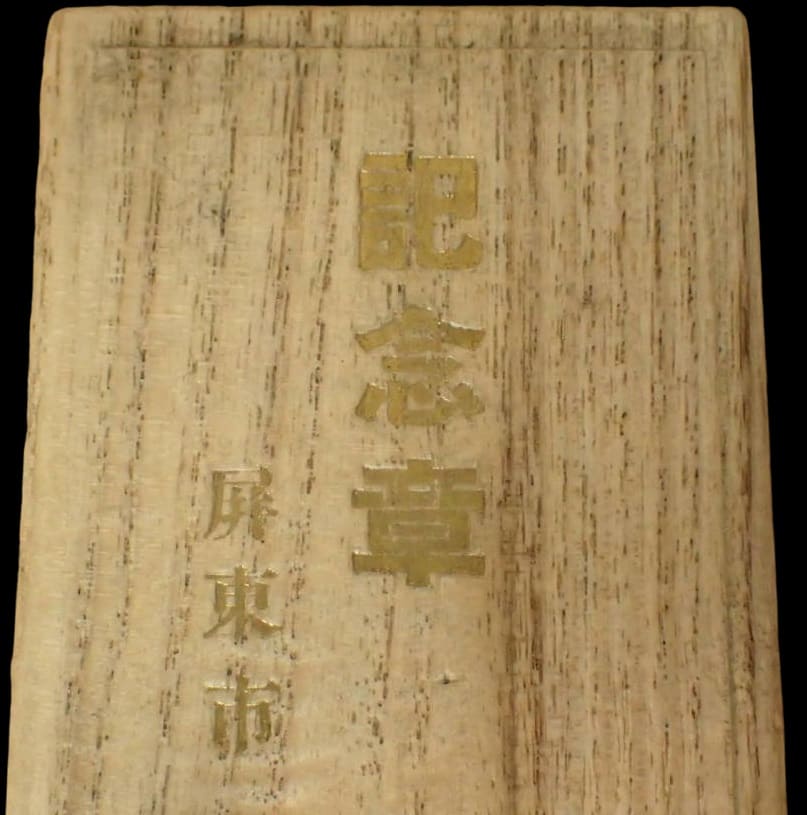 記念章
屏東市